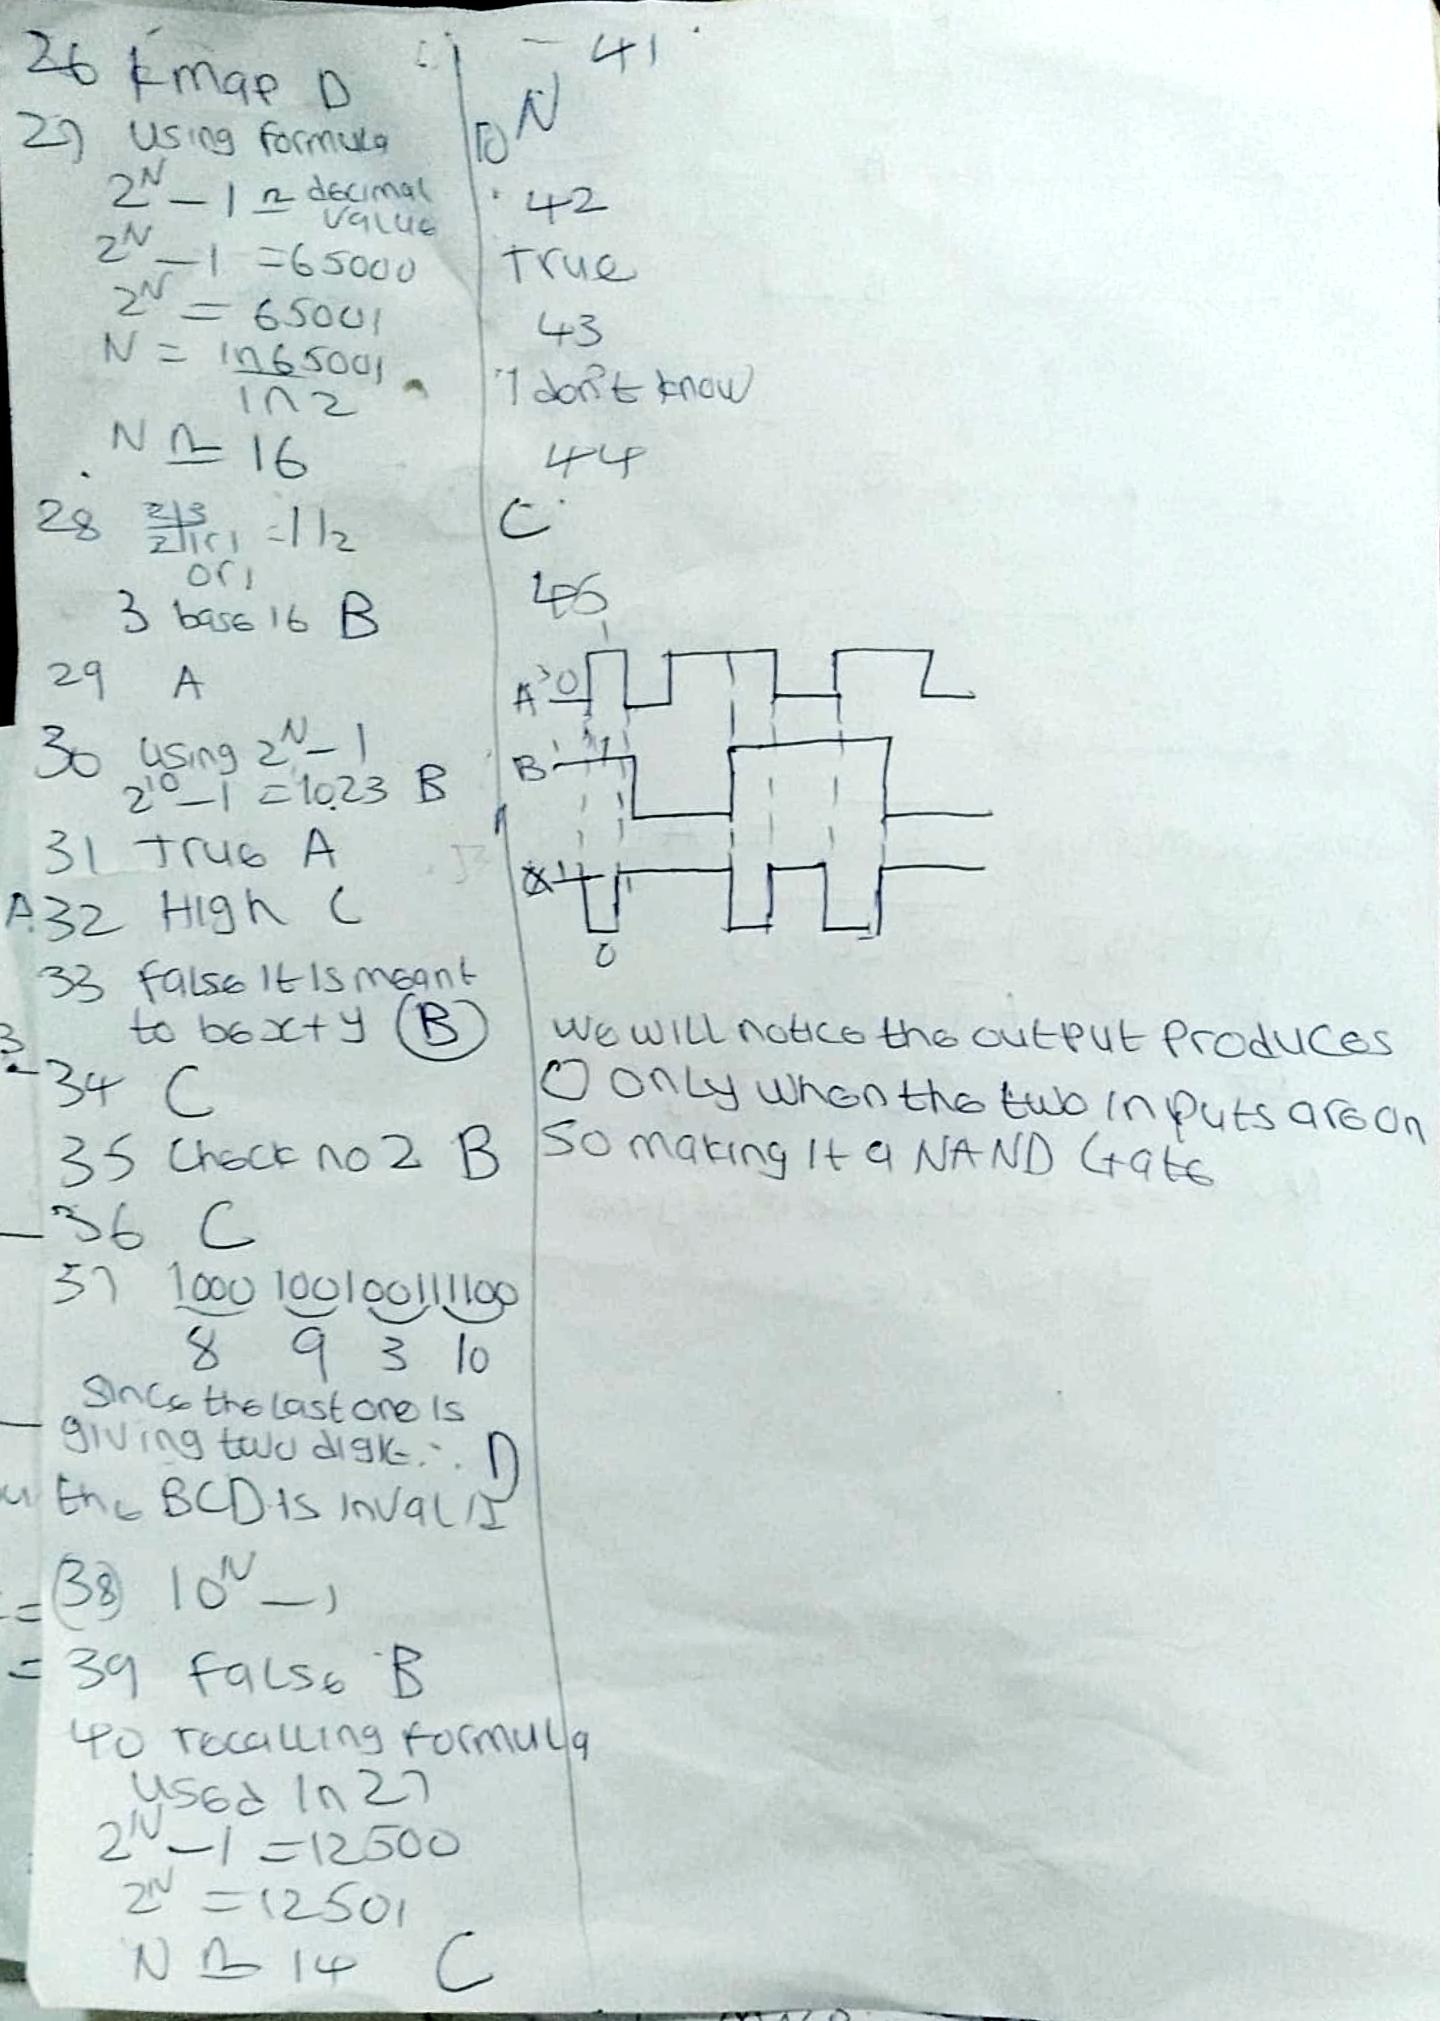 26 kmap D
27 using formula
2^N – 1 ≃ decimal
value
2^N – 1 = 65000
2^N = 65001
N = ln 65001
ln 2
N ≃ 16
28 2|3
2|1 r 1 = 11₂
0 r 1
3 base 16 B
29 A
30 using 2^N – 1
2^10 – 1 = 1023 B
31 True A
A. 32 High C
33 False it is meant
to be x+y (B)
34 C
35 Check no 2 B
36 C
37 1000 1001 0011 1100
8 9 3 10
Since the last one is
giving two digit ∴ D
the BCD is invalid
(38) 10^N – 1
= 39 False B
40 recalling formula
used in 27
2^N – 1 = 12500
2^N = 12501
N ≃ 14 C
– 41
10^N
42
True
43
I don't know
44
C
45
A 0
B 1
X 1
0
We will notice the output produces
0 only when the two inputs are on
So making it a NAND Gate